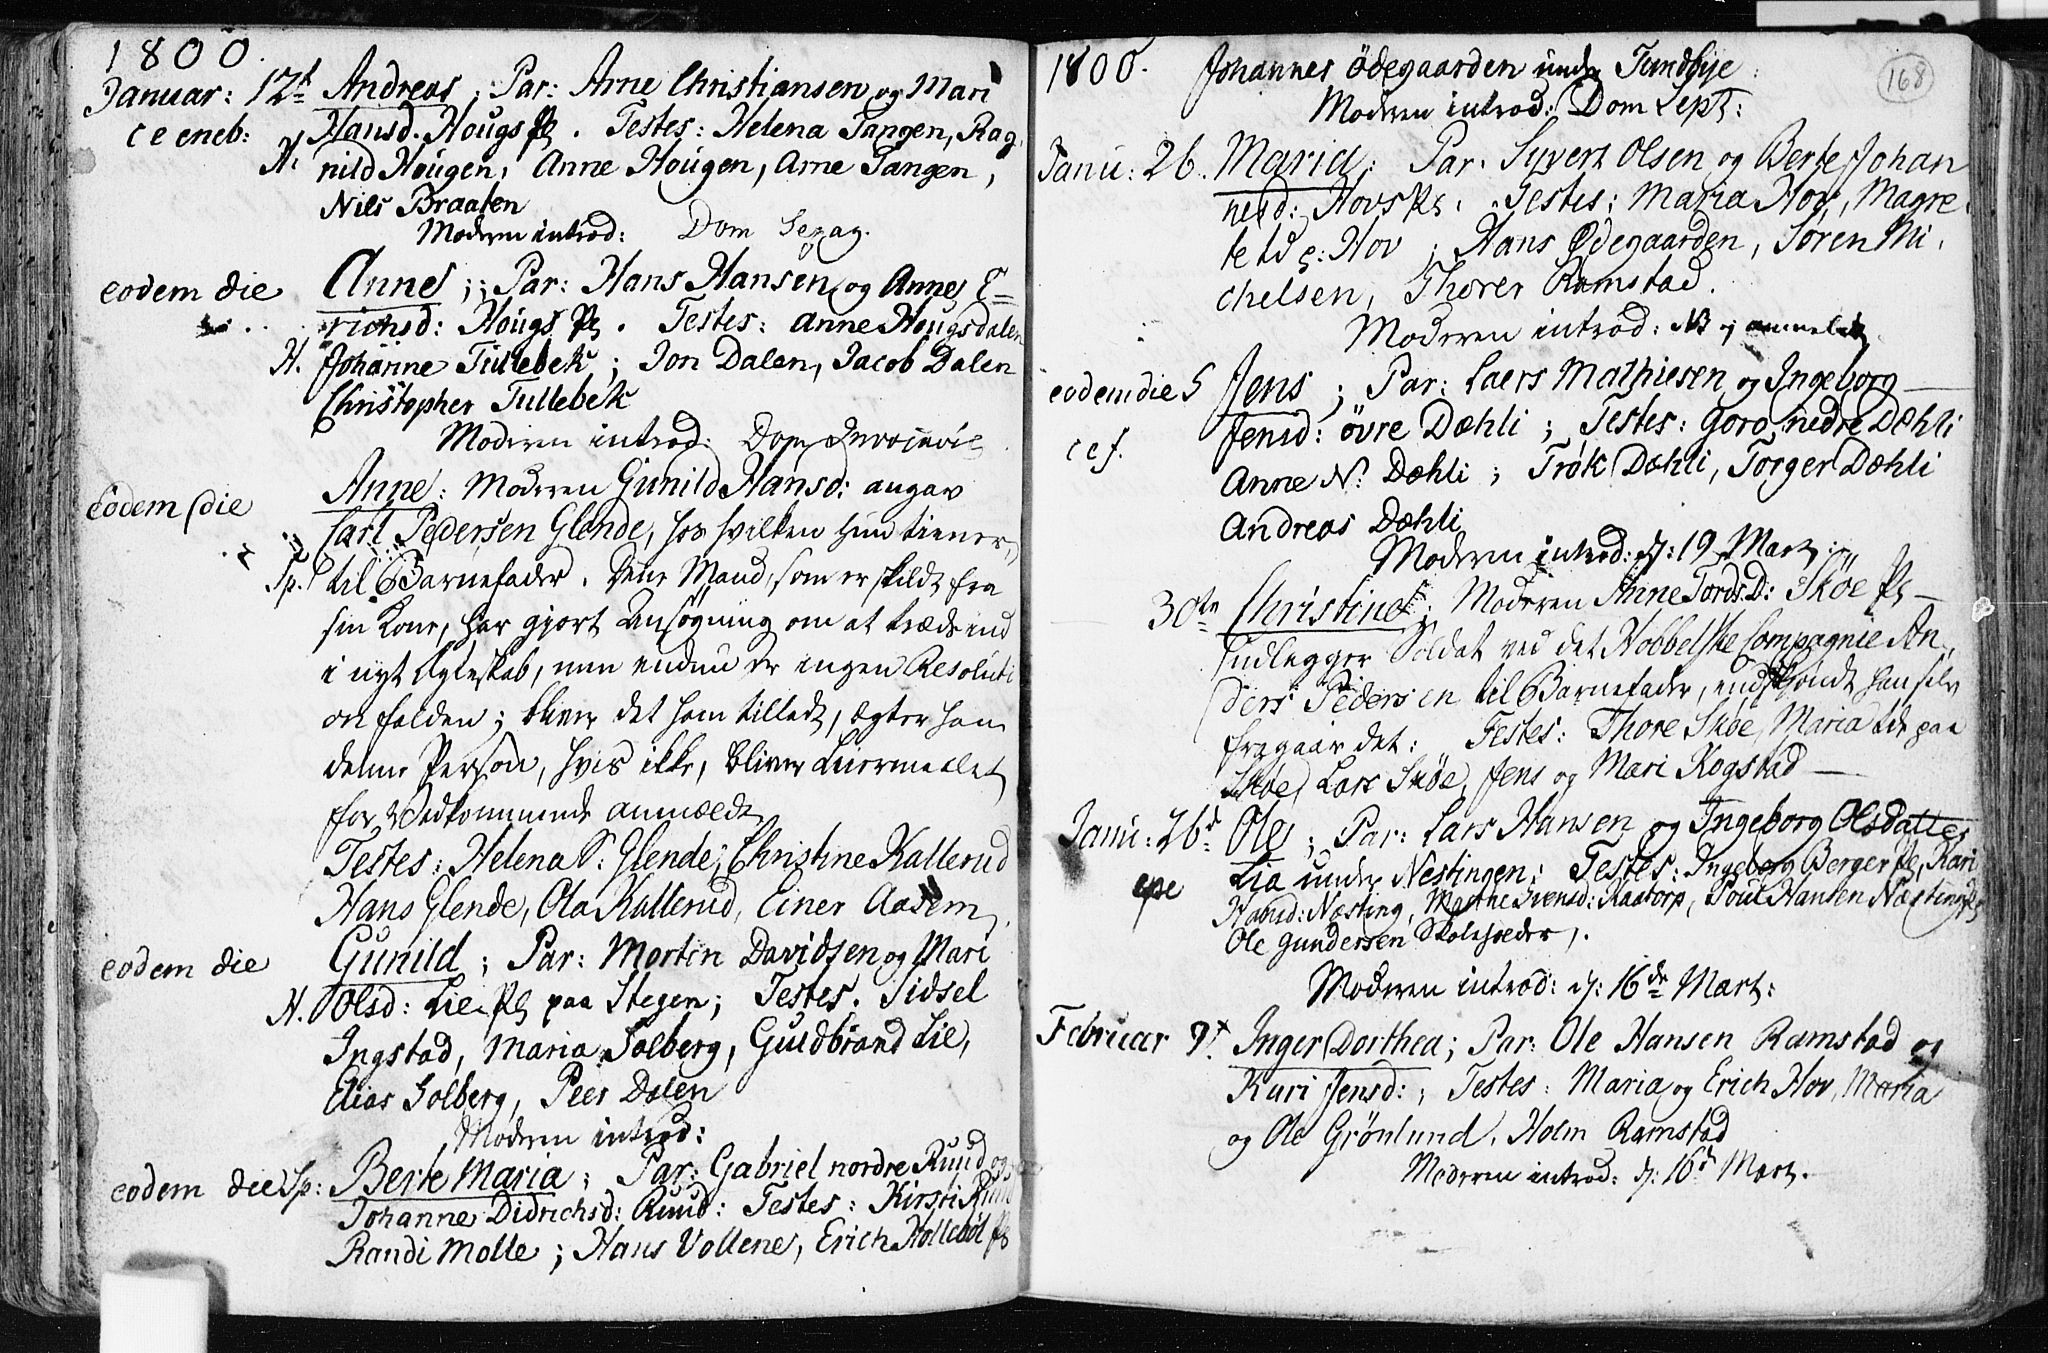 1800.
Januar: 12t Andreas; Par: Arne Christiansen og Mari
Hansd. Hougs Pl. Testes: Helena Tangen, Rag-
H. nild Hougen, Anne Hougen, Arne Tangen,
Nils Braaten
Modren introd: Dom Sexag.
eodem die Anne; Par: Hans Hansen og Anne E=
richsd: Hougs Pl. Testes: Anne Hougsdalen
H. Johanne Tullebek; Jon Dalen, Jacob Dalen
Christopher Tullebek
Modren introd: Dom
eodem die Anne: Modren Gunild Hansd: angav
Carl Pedersen Glende, hos hvilken hun tiener,
Sp. til Barnefader. Denne Mand, som er skildt fra
sin Kone, har gjort Ansøgning om at træde ind
i nyt Egteskab, men endnu er ingen Resoluti
on falden; bliver det ham tilladt, ægter han
denne Person, hvis ikke, bliver
for Vedkommende anmældt
Testes: Helena S: Glende; Christine Kallerud
Hans Glende, Ola Kallerud, Einer Aasem
eodem die Gunild; Par: Morten Davidsen og Mari
H. Olsd: Lie Pl paa Stegen; Testes. Sidsel
Ingstad, Maria Solberg, Guldbrand Lie,
Elias Solberg, Peer Dalen
Modren introd:
eodem die Sp: Berte Maria; Par: Gabriel nordre Ruud og
Johanne Didrichsd: Ruud: Testes: Kirsti Ruud
Randi Molle; Hans Vollene, Erich Hollebøl Pl
1800. Johannes Ödegaarden under Tundbye:
168
Modren introd: Dom Sept:
Janu: 26. Maria: Par. Syvert Olsen og Berte Johan
nesd: Hovs Pl. Testes: Maria Hov, Magre-
te Hov; Hans Ødegaarden, Søren Mi-
chelsen, Thorer Ramstad.
Modren introd: NB ej anmeldt
eodem die S Jens; Par: Laers Mathiesen og Ingeborg
Jensd: øvre Dæhli; Testes: Goro nedre Dæhli
Anne N: Dæhli; Trok Dæhli, Torger Dæhli
Andreas Dæhli
Modren introd: d: 19 Mart:
30te Christine; Modren Anne Tords D: Skøe Pl
udlegger Soldat ved det Hobbelske Compagnie An-
ders Pedersen til Barnefader, endskjøndt han selv
fragaar det: Testes: Thore Skøe, Maria paa
Skøe, Lars Skøe, Jens og Mari Kogstad
Janu: 26d Ole; Par: Lars Hansen og Ingeborg Olsdatter
Lia under Nestingen: Testes: Ingeborg Berger Pl, Kari
Hansd: Næsting, Marthe Svensd: Kaatorp, Poul Hansen Næsting
Ole Gundersen Skoleholder.
Modren introd: d: 16de Mart:
Februar 9t. Inger Dorthea; Par: Ole Hansen Ramstad og
Kari Jensd:; Testes: Maria og Erich Hov, Maria
og Ole Grönlund, Holm Ramstad
Modren introd: d: 16d Mart.